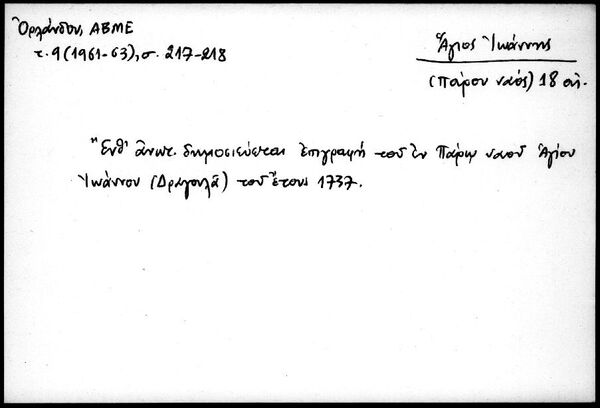 Ὀρλάνδου, ΑΒΜΕ
τ. 9 (1961-63), σ. 217-218
Ἅγιος Ἰωάννης
(Πάρου ναός) 18 αἰ.
Ἔνθ' ἀνωτ. δημοσιεύεται ἐπιγραφή τοῦ ἐν Πάρῳ ναοῦ Ἁγίου
Ἰωάννου (Δραγουλᾶ) τοῦ ἔτους 1737.